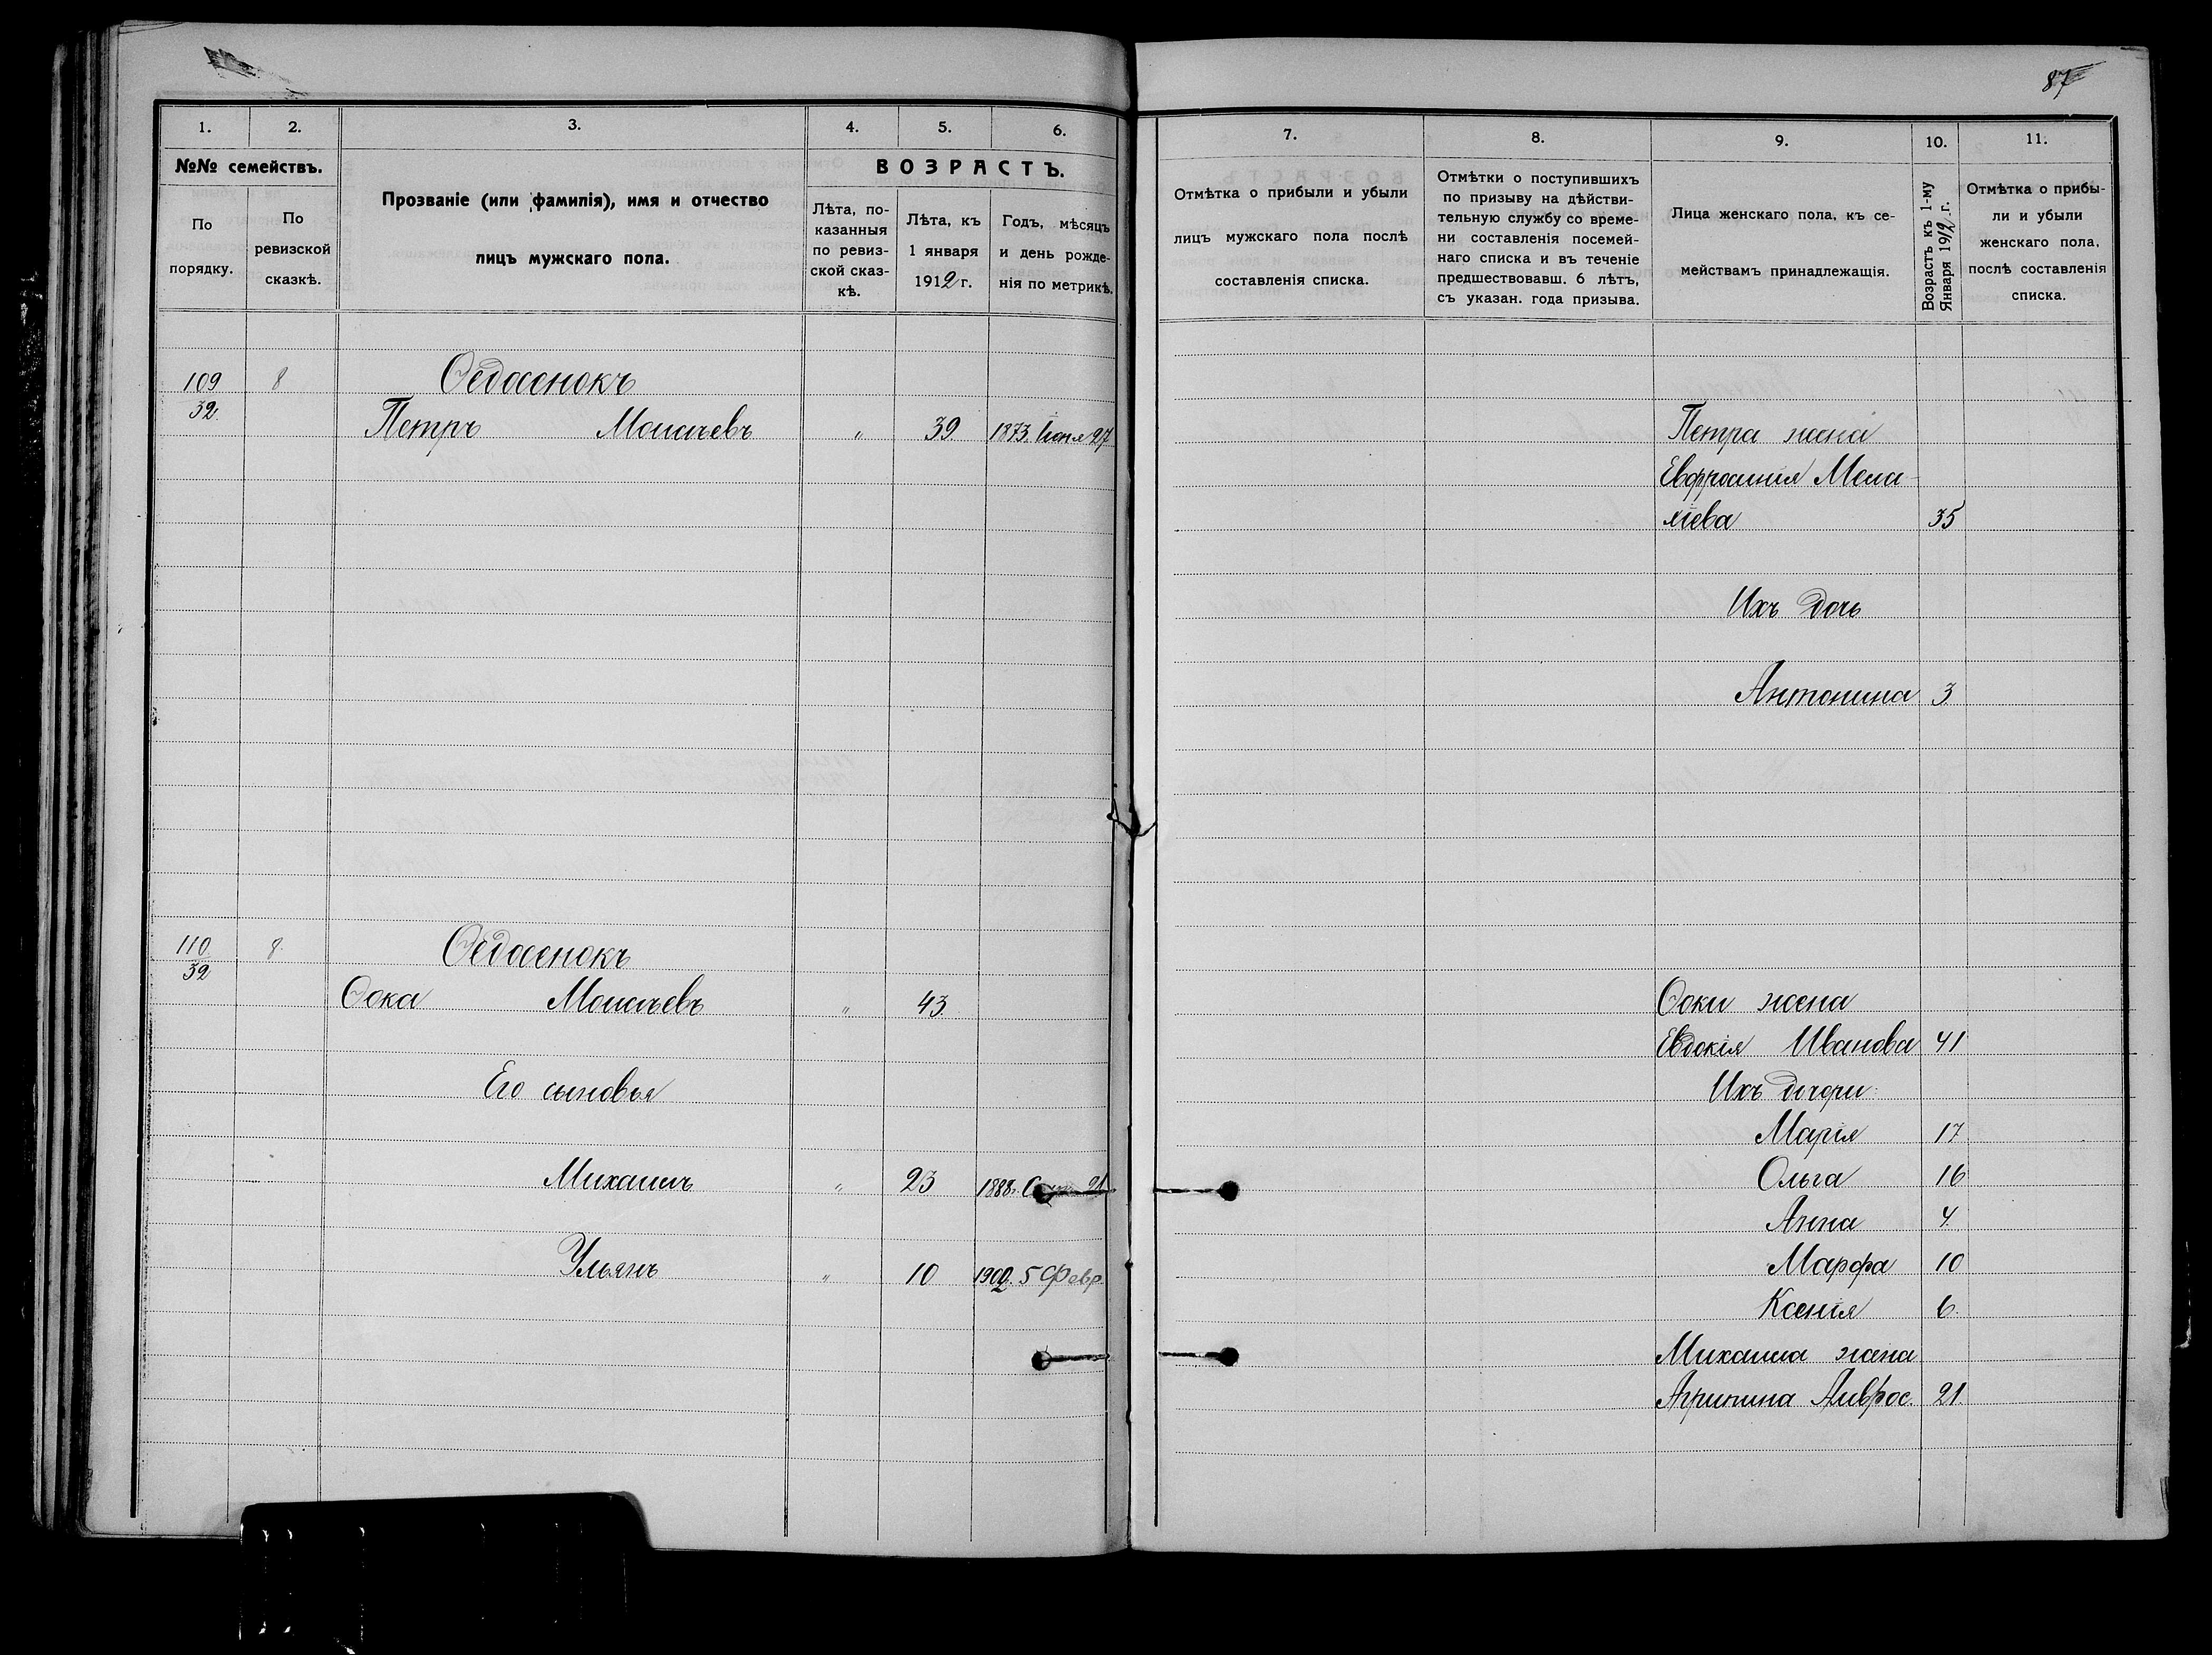 87
1. 2. 3. 4. 5. 6.
№№ семействъ.
По порядку.
По ревизской сказкѣ.
Прозваніе (или фамилія), имя и отчество
лицъ мужскаго пола.
ВОЗРАСТЪ.
Лѣта, по-
казанныя
по ревиз-
ской сказ-
кѣ.
Лѣта, къ
1 января
1912 г.
Годъ, мѣсяцъ
и день рожде-
нія по метрикѣ.
109 8 Ѳедосенокъ
32
Петръ Моисѣевъ " 39. 1873. Іюня 27
110 8. Ѳедосенокъ
32
Ѳока Моисѣевъ " 43.
Его сыновья
Михаилъ " 23 1888. 21
Ульянъ " 10 1902. 5 Февр.
7. 8. 9. 10. 11.
Отмѣтка о прибыли и убыли
лицъ мужскаго пола послѣ
составленія списка.
Отмѣтки о поступившихъ
по призыву на дѣйстви-
тельную службу со време-
ни составленія посемей-
наго списка и въ теченіе
предшествовавш. 6 лѣтъ,
съ указан. года призыва.
Лица женскаго пола, къ се-
мействамъ принадлежащія.
Возрастъ къ 1-му
Января 1912 г.
Отмѣтка о прибы-
ли и убыли
женскаго пола,
послѣ составленія
списка.
Петра жена
Евфросинія Мела-
хіева 35
Ихъ дочь
Антонина 3.
Ѳоки жена
Евдокія Иванова 41
Ихъ дочери:
Марія 17
Ольга 16
Анна 4.
Марфа 10
Ксенія 6.
Михаила жена
Агрипина Амврос. 21.